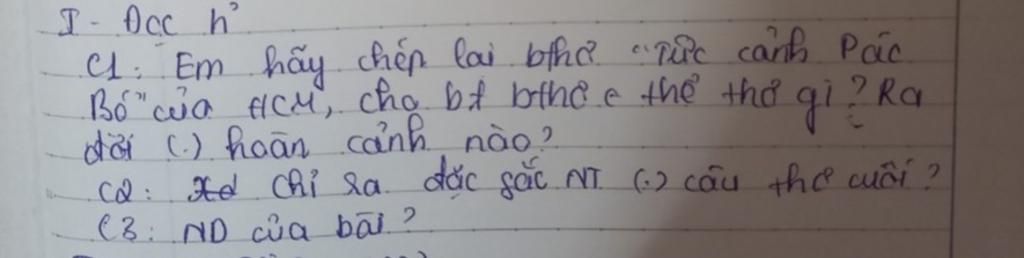 I - Đọc h'
C1: Em hãy chép lại bthơ "Tức cảnh Pác
Bó" của HCM, cho bt bthơ e thể thơ gì? Ra
đời (.) hoàn cảnh nào?
C2: Chỉ ra đặc sắc NT (.) câu thơ cuối?
C3: ND của bài?